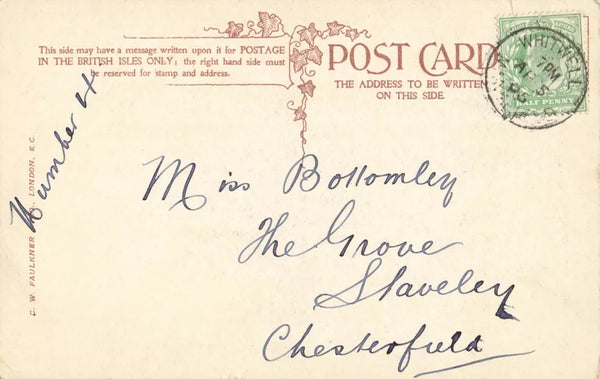 This side may have a message written upon it for POSTAGE
IN THE BRITISH ISLES ONLY; the right hand side must
be reserved for stamp and address.
POST CARD
THE ADDRESS TO BE WRITTEN
ON THIS SIDE.
WHITWELL
7 PM
HALF PENNY
Number 4
C. W. FAULKNER LONDON, E.C.
Miss Bottomley
The Grove
Staveley
Chesterfield